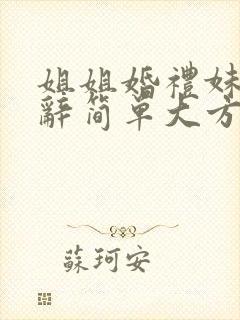 姐姐婚禮妹
辭简單大方
蘇珂安